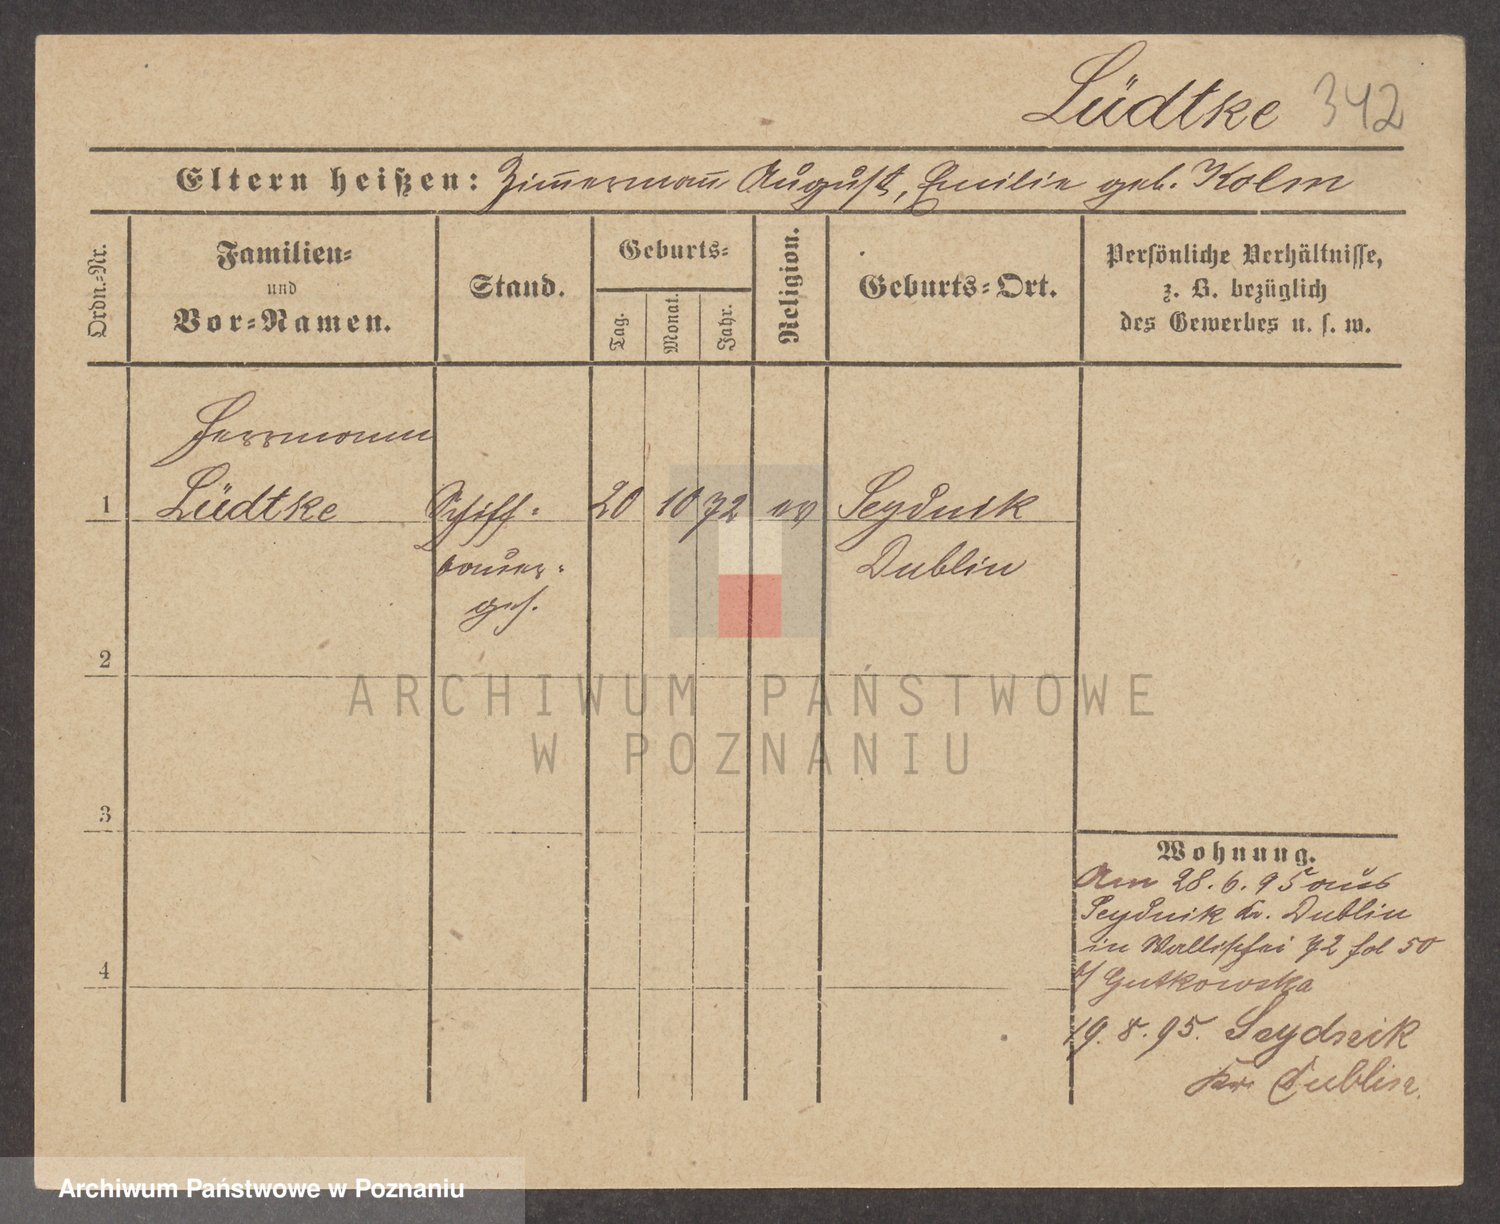 Lüdtke 342
Eltern heißen: Zimmermann August, Emilie geb. Kolm
Ordn.-Nr.
Familien-
und
Vor-Namen.
Stand.
Geburts-
Tag.
Monat.
Jahr.
Religion.
Geburts-Ort.
Persönliche Verhältnisse,
z. B. bezüglich
des Gewerbes u. s. w.
Herrmann
1 Lüdtke Schiff- 20 10 72 ev Seydnik
bauer- Dublin
ges.
2
3
4
Wohnung.
Am 28.6.95 aus
Seydnik Kr. Dublin
in Wallischei 72 fol 50
b/ Gutkowska
19.8.95. Seydnik
Kr. Dublin.
ARCHIWUM PAŃSTWOWE
W POZNANIU
Archiwum Państwowe w Poznaniu